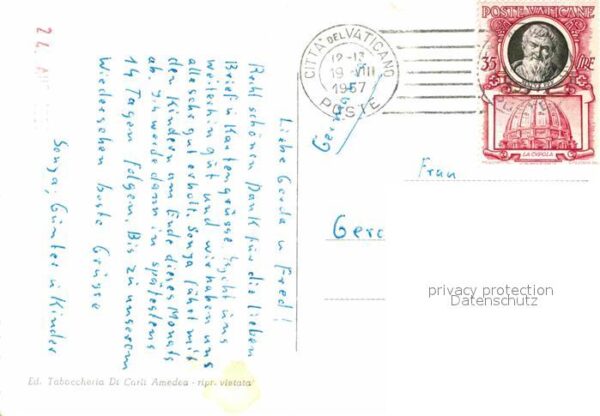 Liebe Gerda u Fred!
Recht schönen Dank für die lieben
Brief u Kartengrüsse. Es geht uns
weiterhin gut und wir haben uns
alle sehr gut erholt. Sonya fährt mit
den Kindern am Ende dieses Monats
ab. Ich werde dann in spätestens
14 Tagen folgen. Bis zu unserem
Wiedersehen beste Grüsse
Sonya, Günter u Kinder
CITTÀ DEL VATICANO
12-13
19 VIII
1957
POSTE
POSTE VATICANE
35 LIRE
LA CVPOLA
Germania
Frau
Gerd
privacy protection
Datenschutz
Ed. Tabaccheria Di Carli Amedea - ripr. vietata